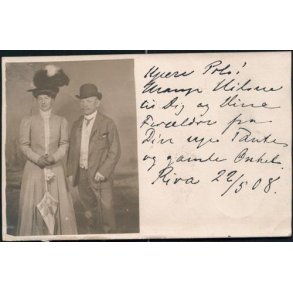 Kjere Pols!
Mange Hilsner
til Dig og Dine
Forældre fra
Din nye Tante
og gamle Onkel.
Riva 22/5 08.